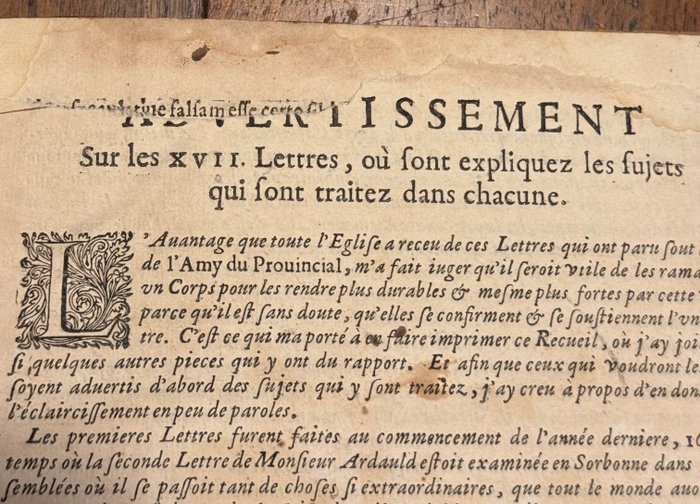 falsam esse certo
ADVERTISSEMENT
Sur les XVII. Lettres, où ſont expliquez les ſujets
qui ſont traitez dans chacune.
L'Auantage que toute l'Egliſe a receu de ces Lettres qui ont paru ſout
de l'Amy du Prouincial, m'a fait iuger qu'il ſeroit vtile de les rama
vn Corps pour les rendre plus durables & meſme plus fortes par cette
parce qu'il eſt ſans doute, qu'elles ſe confirment & ſe ſouſtiennent l'vn
tre. C'eſt ce qui ma porté a en faire imprimer ce Recueil, où j'ay joi
ſi quelques autres pieces qui y ont du rapport. Et afin que ceux qui voudront le
ſoyent aduertis d'abord des ſujets qui y ſont traitez, j'ay creu à propos d'en don
l'éclairciſſement en peu de paroles.
Les premieres Lettres furent faites au commencement de l'année derniere, 16
temps où la ſeconde Lettre de Monſieur Ardauld eſtoit examinée en Sorbonne dans
ſemblées où il ſe paſſoit tant de choſes ſi extraordinaires, que tout le monde auo